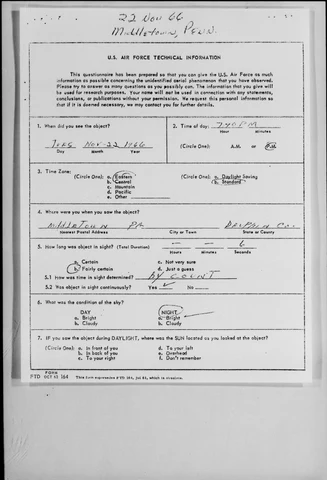 22 Nov 66
Middletown, Penn.
U.S. AIR FORCE TECHNICAL INFORMATION
This questionnaire has been prepared so that you can give the U.S. Air Force as much
information as possible concerning the unidentified aerial phenomenon that you have observed.
Please try to answer as many questions as you possibly can. The information that you give will
be used for research purposes. Your name will not be used in connection with any statements,
conclusions, or publications without your permission. We request this personal information so
that if it is deemed necessary, we may contact you for further details.
1. When did you see the object?
TUES NOV-22 1966
Day Month Year
2. Time of day: 740 PM
Hour Minutes
(Circle One): A.M. or P.M.
3. Time Zone:
(Circle One): a. Eastern
b. Central
c. Mountain
d. Pacific
e. Other
(Circle One): a. Daylight Saving
b. Standard
4. Where were you when you saw the object?
MIDDLETOWN PA DAUPHIN CO.
Nearest Postal Address City or Town State or County
5. How long was object in sight? (Total Duration) — — 6
Hours Minutes Seconds
a. Certain c. Not very sure
b. Fairly certain d. Just a guess
5.1 How was time in sight determined? BY COUNT
5.2 Was object in sight continuously? Yes ✓ No
6. What was the condition of the sky?
DAY NIGHT
a. Bright a. Bright
b. Cloudy b. Cloudy
7. IF you saw the object during DAYLIGHT, where was the SUN located as you looked at the object?
(Circle One): a. In front of you d. To your left
b. In back of you e. Overhead
c. To your right f. Don't remember
FORM
FTD OCT 62 164 This form supersedes FTD 164, Jul 61, which is obsolete.